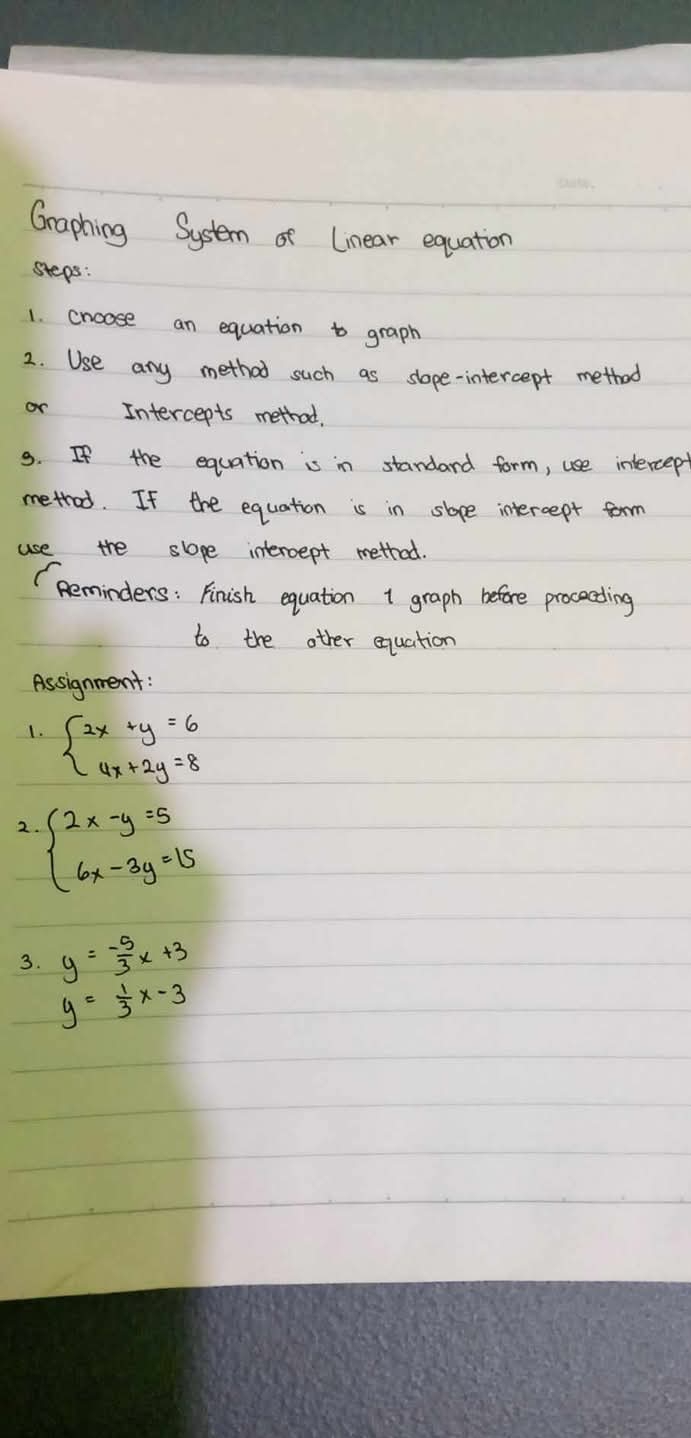 Date.
Graphing System of Linear equation
Steps:
1. Choose an equation to graph
2. Use any method such as slope-intercept method
or Intercepts method.
3. If the equation is in standard form, use intercept
method. If the equation is in slope intercept form
use the slope intercept method.
Reminders: Finish equation 1 graph before proceeding
to the other equation
Assignment:
1. { 2x + y = 6
4x + 2y = 8
2. { 2x - y = 5
6x - 3y = 15
3. y = -5/3 x + 3
y = 1/3 x - 3